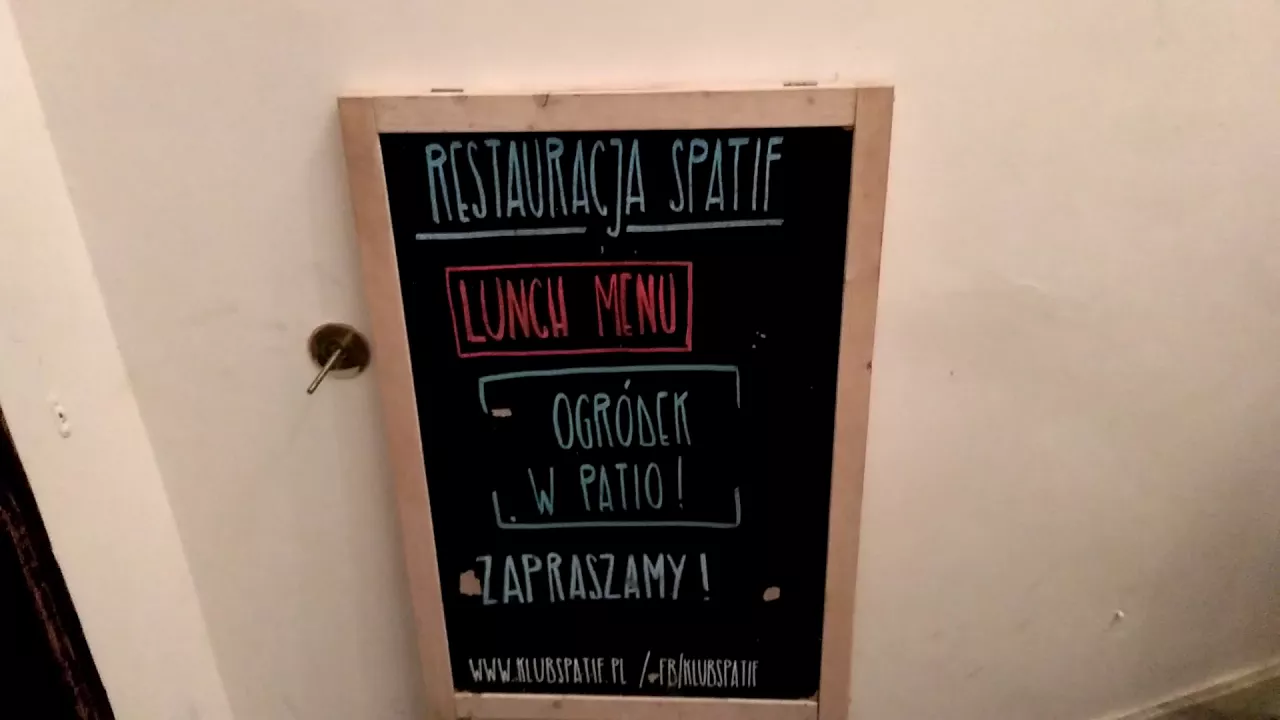 RESTAURACJA SPATIF
LUNCH MENU
OGRÓDEK
W PATIO!
ZAPRASZAMY!
WWW.KLUBSPATIF.PL / FB/KLUBSPATIF